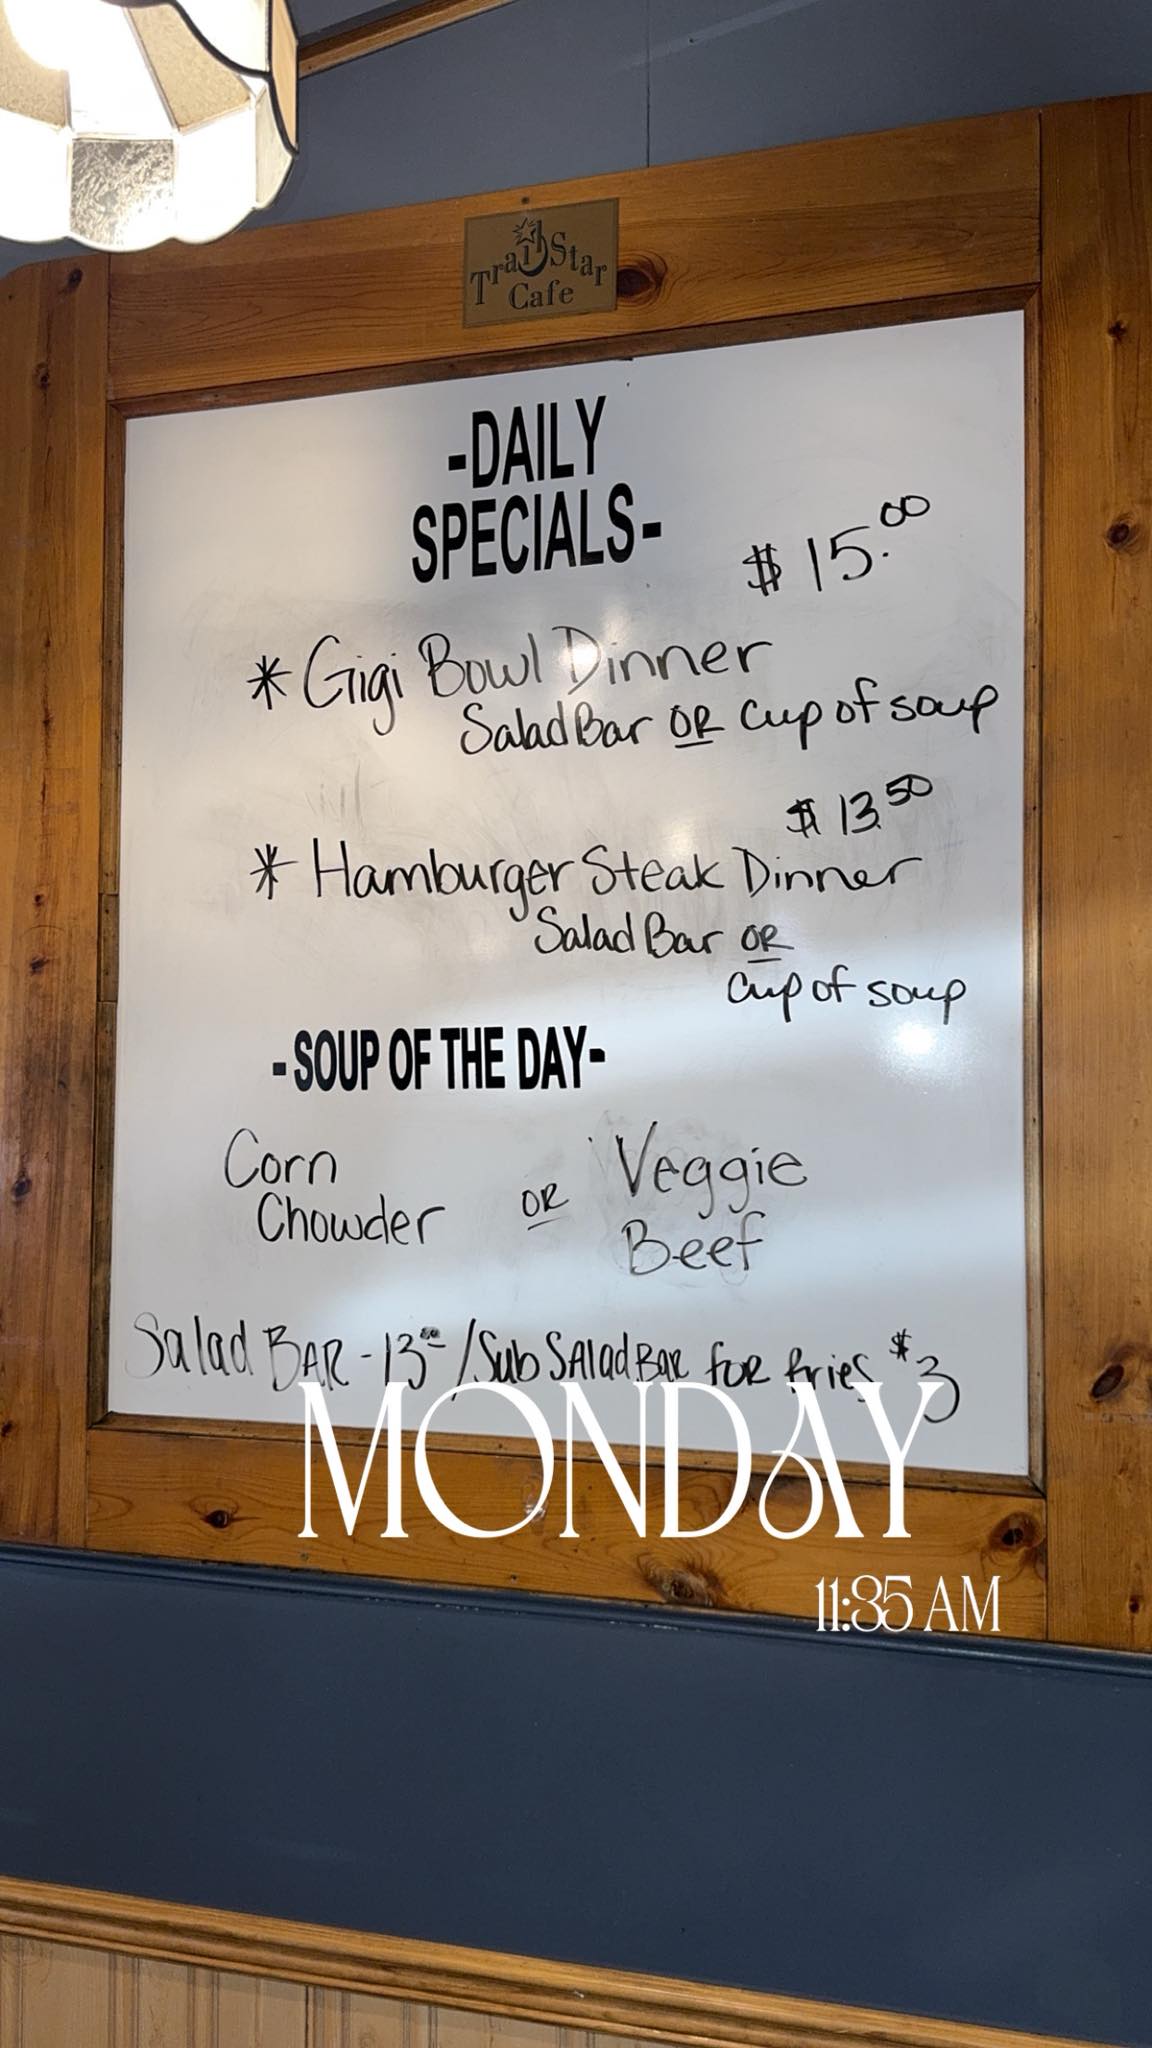 Trail Star
Cafe
-DAILY
SPECIALS-
$15.00
* Gigi Bowl Dinner
Salad Bar OR Cup of soup
$13.50
* Hamburger Steak Dinner
Salad Bar OR
Cup of soup
-SOUP OF THE DAY-
Corn
Chowder
OR
Veggie
Beef
Salad BAR - 13 / Sub SAlad BAR foR fries $3
MONDAY
11:35 AM